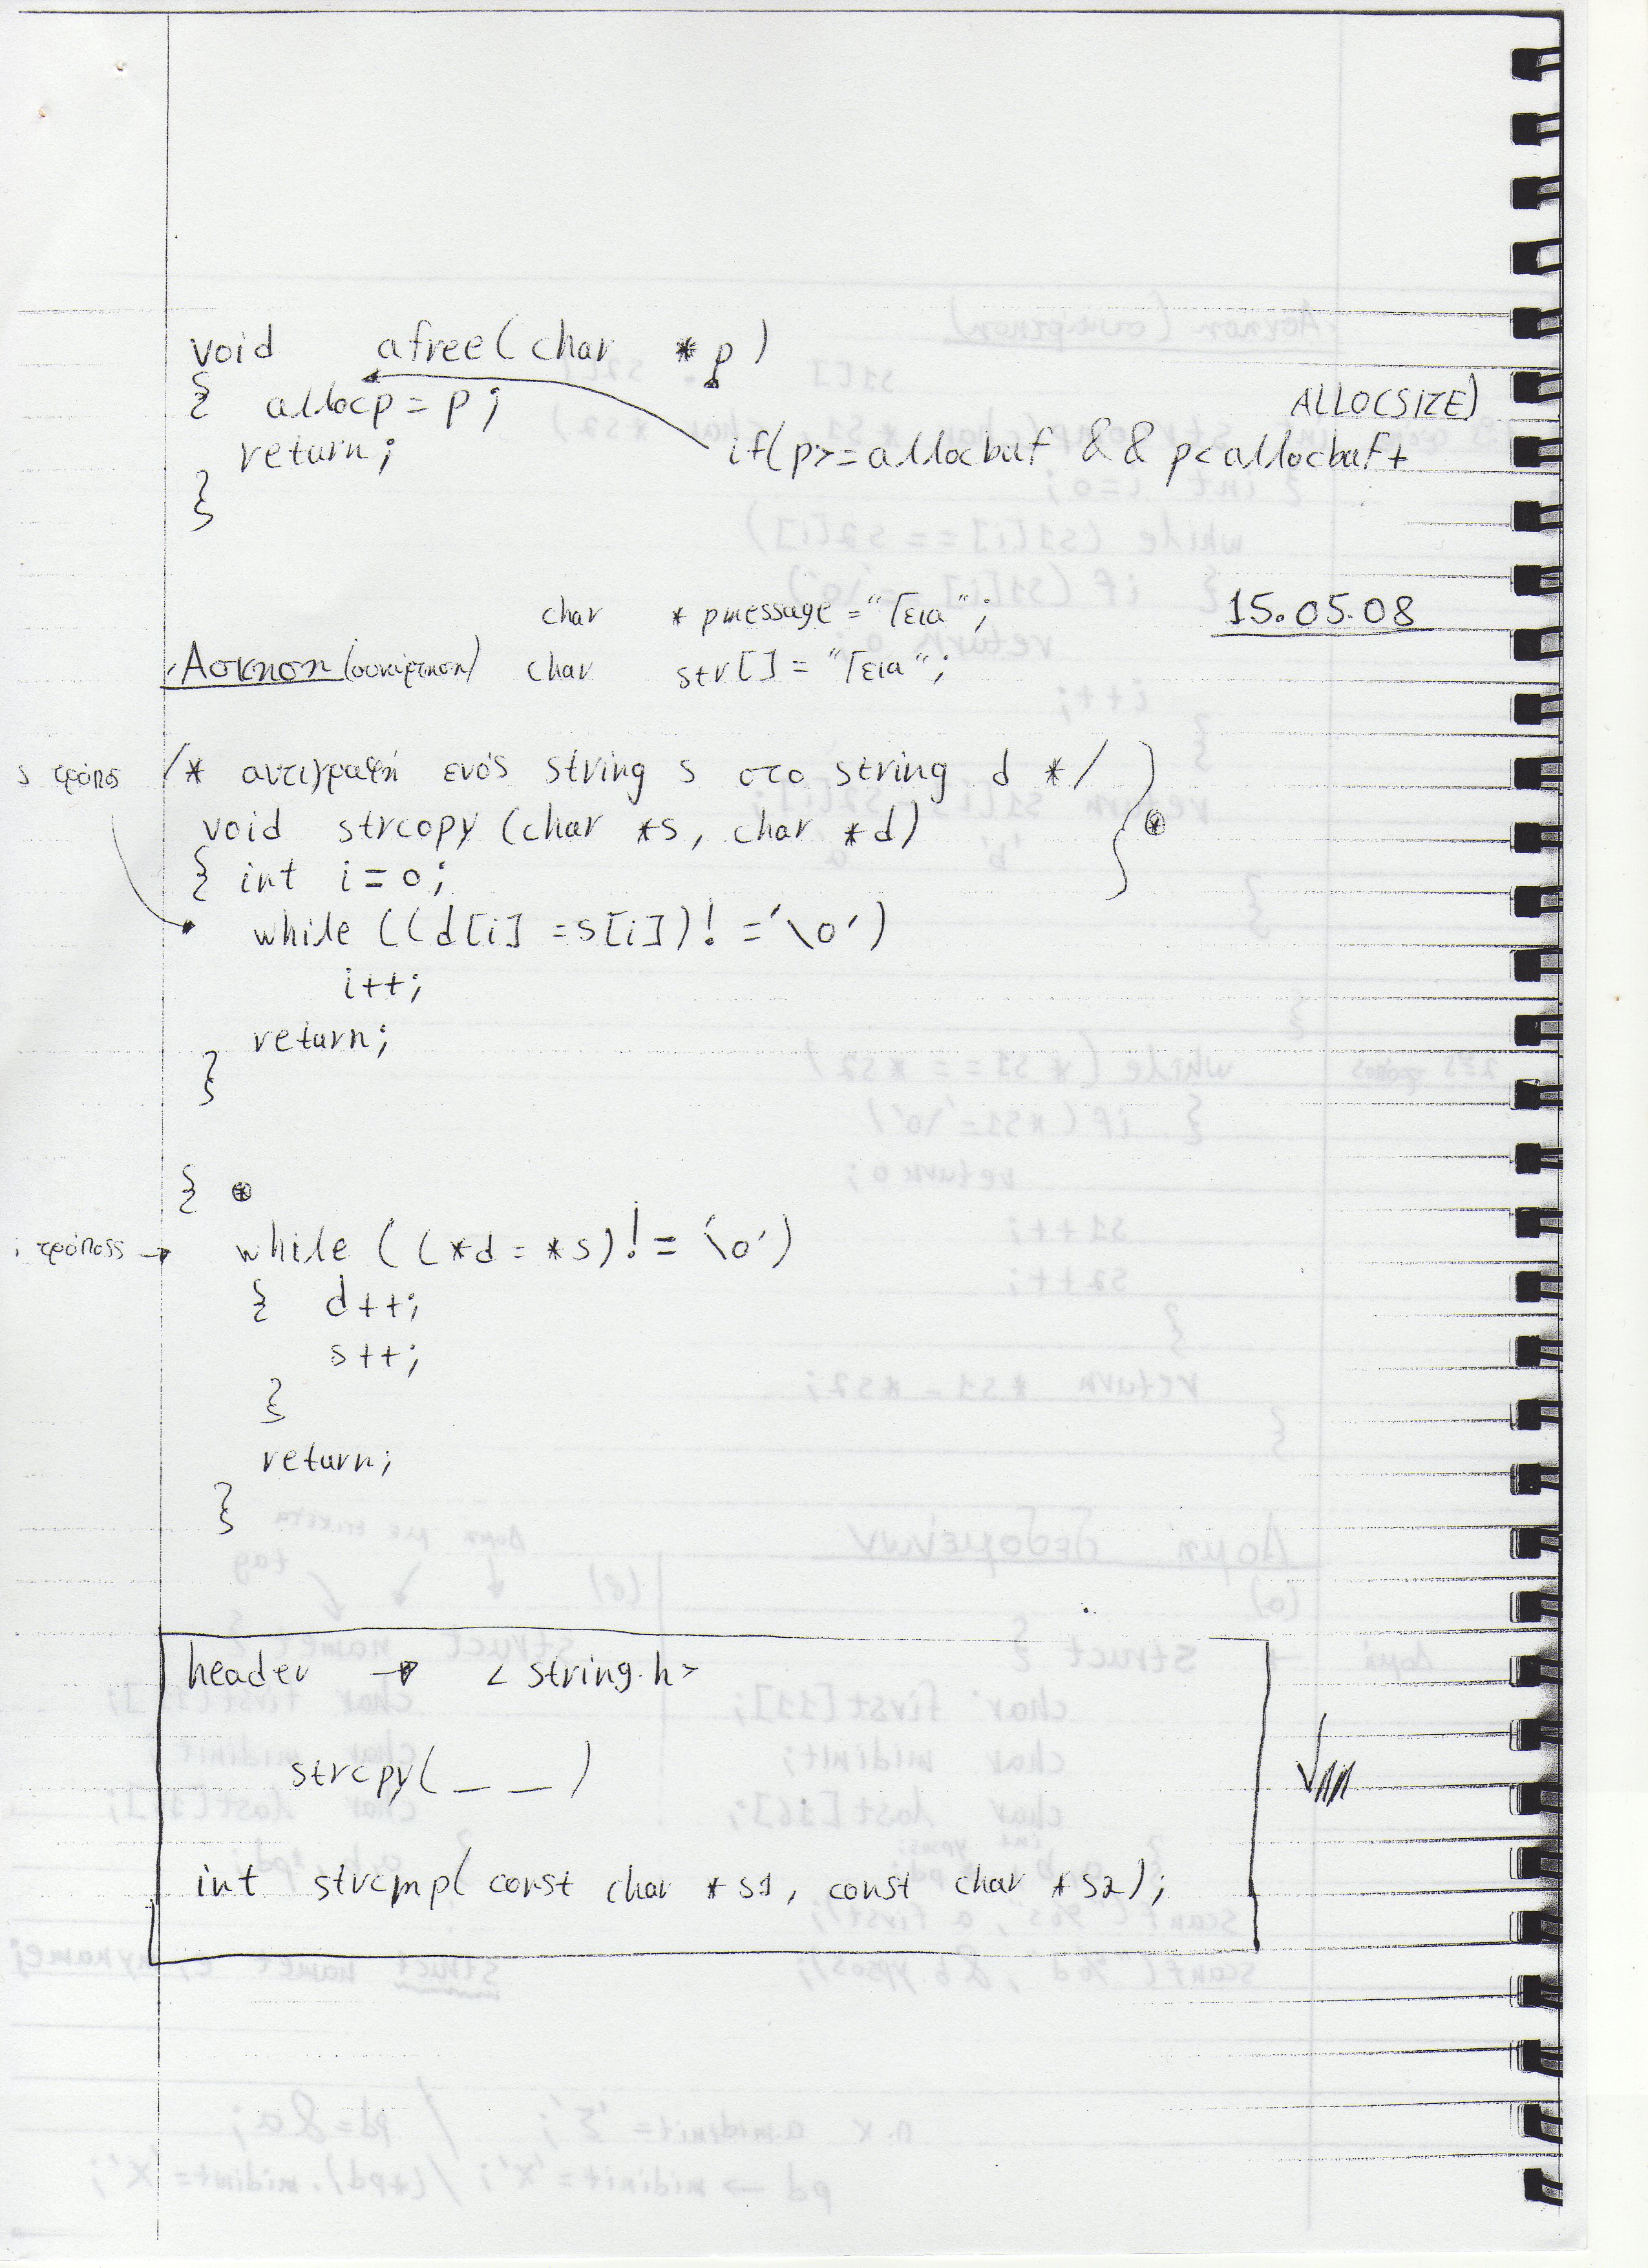 void afree(char *p)
{ allocp = p;
ALLOCSIZE)
return;
if(p>=allocbuf && p<allocbuf+
}
char *pmessage = "Γεια";
15.05.08
Άσκηση char str[] = "Γεια";
s τρόπος /* αντιγραφή ενός string s στο string d */
void strcopy (char *s, char *d)
{ int i=0;
while ((d[i] =s[i])!='\0')
i++;
return;
}
{ *
τρόπος → while ((*d = *s)!= '\0')
{ d++;
s++;
}
return;
}
header → <string.h>
strcpy( _ _ )
int strcmp( const char *s1, const char *s2);